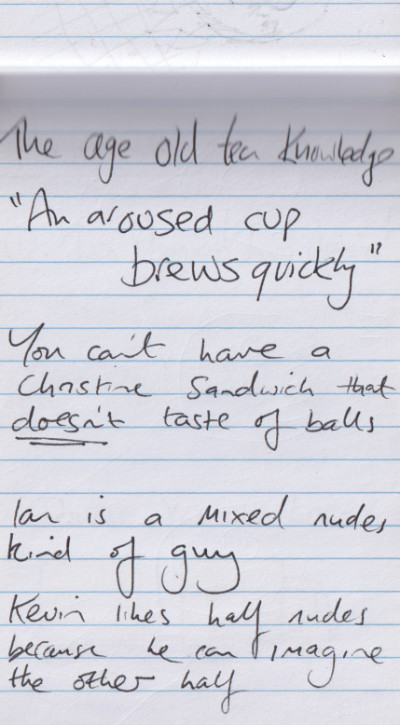 The age old tea knowledge
"An aroused cup
brews quickly"
You can't have a
Christine Sandwich that
doesn't taste of balls
Ian is a mixed nudes
kind of guy
Kevin likes half nudes
because he can imagine
the other half